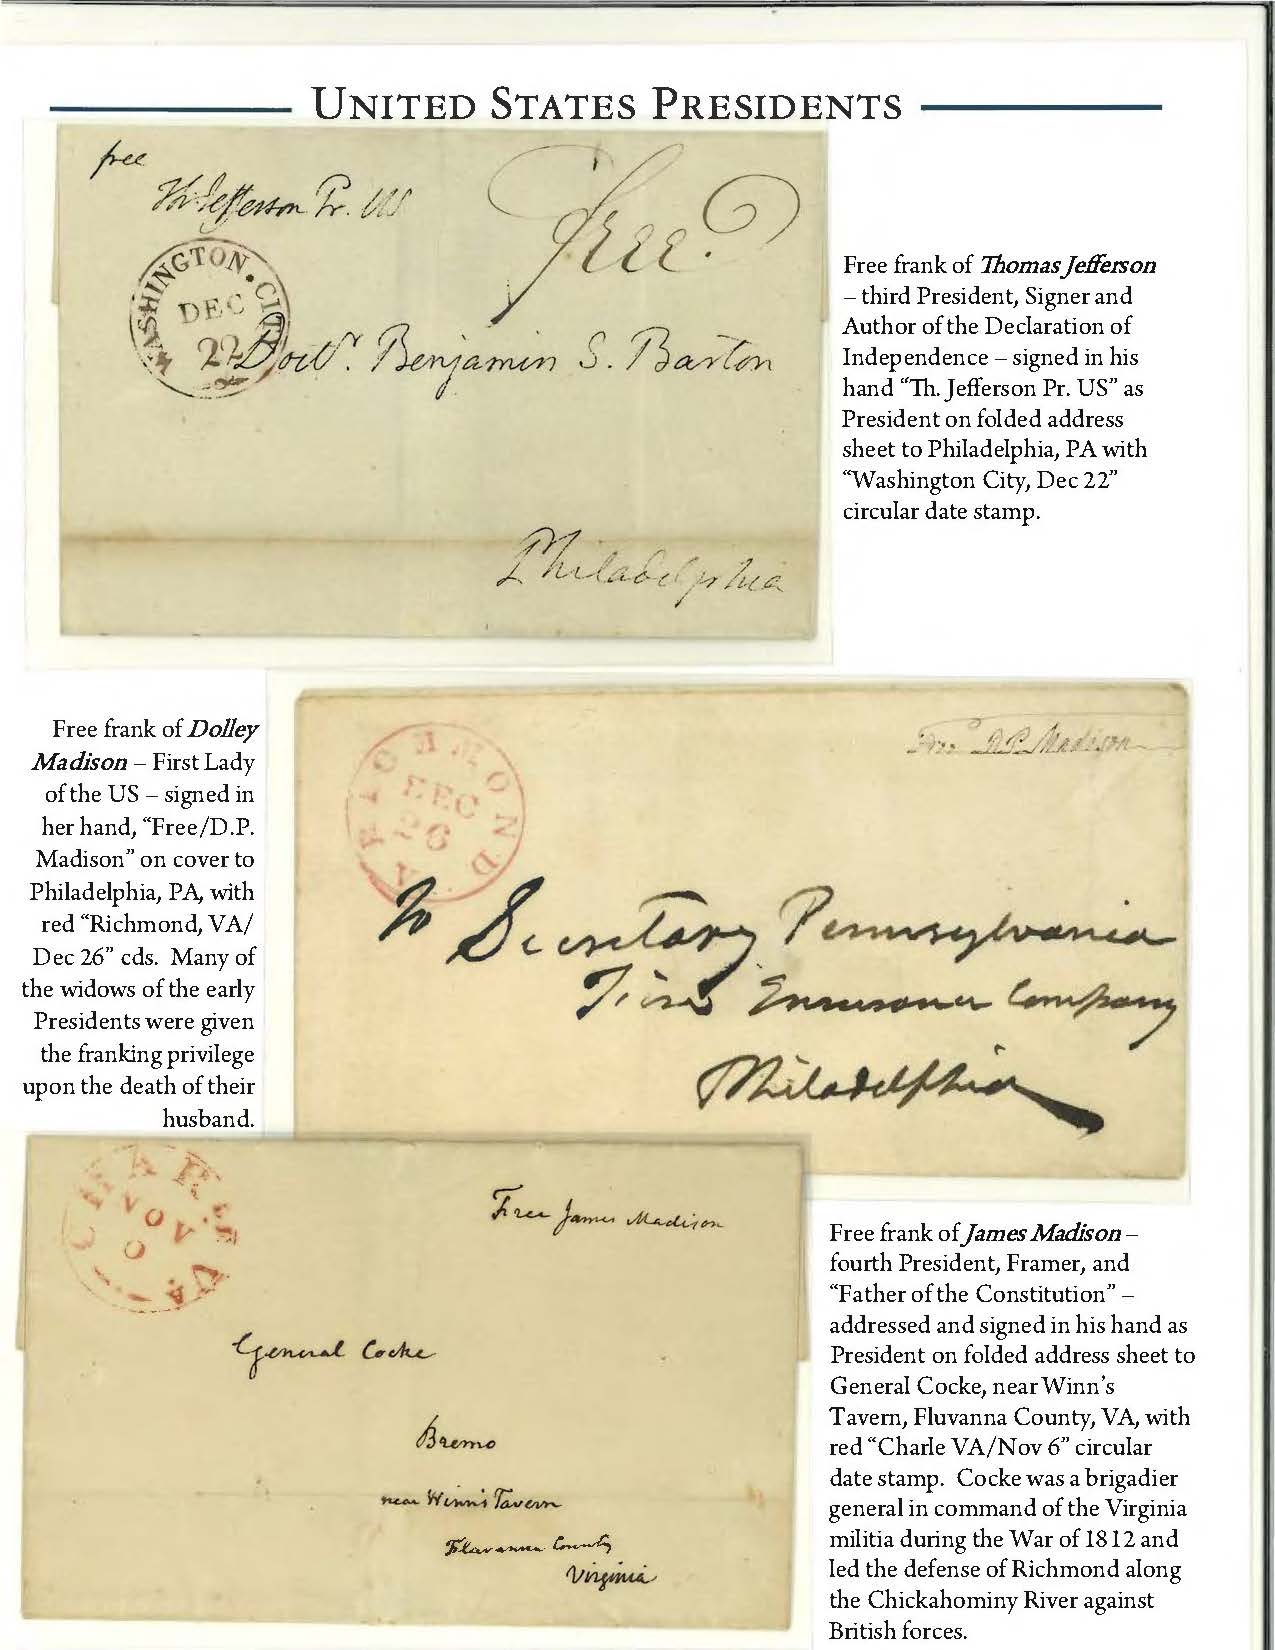 UNITED STATES PRESIDENTS
free
Th: Jefferson Pr. US
free.
WASHINGTON. CITY
DEC
22
Doctr. Benjamin S. Barton
Philadelphia
Free frank of Thomas Jefferson
– third President, Signer and
Author of the Declaration of
Independence – signed in his
hand “Th. Jefferson Pr. US” as
President on folded address
sheet to Philadelphia, PA with
“Washington City, Dec 22”
circular date stamp.
Free frank of Dolley
Madison – First Lady
of the US – signed in
her hand, “Free/D.P.
Madison” on cover to
Philadelphia, PA, with
red “Richmond, VA/
Dec 26” cds. Many of
the widows of the early
Presidents were given
the franking privilege
upon the death of their
husband.
Free D.P. Madison
RICHMOND
DEC
26
To Secretary Pennsylvania
Company
Philadelphia
CHARL VA
NOV
Free James Madison
General Cocke
Bremo
near Winn's Tavern
Fluvanna County
Virginia
Free frank of James Madison –
fourth President, Framer, and
“Father of the Constitution” –
addressed and signed in his hand as
President on folded address sheet to
General Cocke, near Winn’s
Tavern, Fluvanna County, VA, with
red “Charle VA/Nov 6” circular
date stamp. Cocke was a brigadier
general in command of the Virginia
militia during the War of 1812 and
led the defense of Richmond along
the Chickahominy River against
British forces.